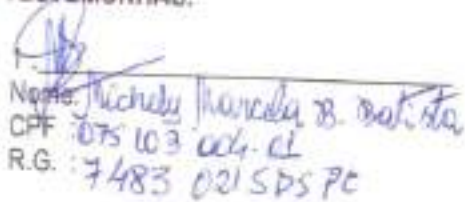 TESTEMUNHAS:
1.
Nome: Michely Marcela B. Batista
CPF: 075 103 004-01
R.G.: 7483 021 SDS PE